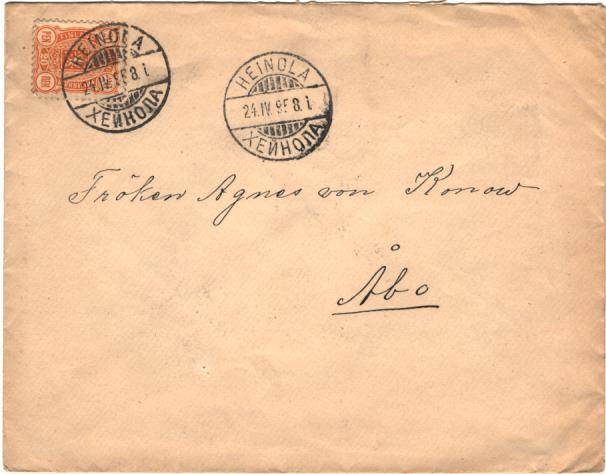 HEINOLA
24.IV.95 8. i.
ХЕЙНОЛА
HEINOLA
24.IV.95 8. i.
ХЕЙНОЛА
Fröken Agnes von Konow
Åbo